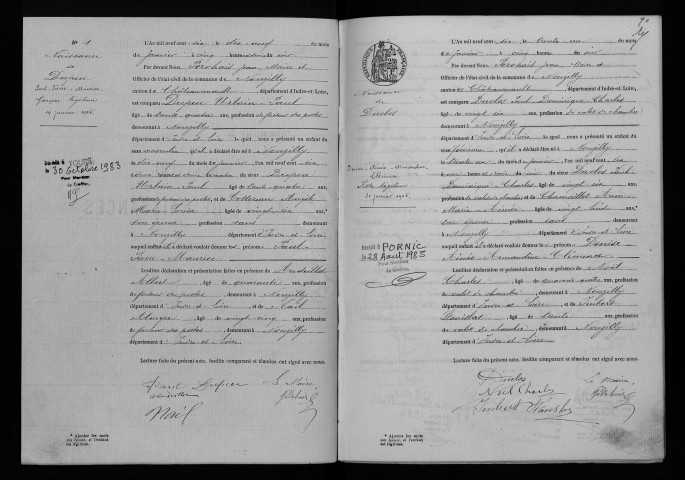 N° 1
Naissance
de
Dupeu
Paul Pierre Maurice
Garçon légitime
19 janvier 1906
Décédé à TOURS
le 30 Octobre 1983
Pour Mention
Le Greffier,
L'An mil neuf cent six le dix neuf du mois
de janvier à cinq heures du soir
Par devant Nous, Maire et
Officier de l'état civil de la commune de Nouzilly
canton de Châteaurenault, département d'Indre-et-Loire,
est comparu Dupeu Urbain Paul
âgé de trente quatre ans, profession de facteur des postes
demeurant à Nouzilly
département d'Indre et Loire, lequel nous a présenté un enfant du
sexe masculin qu'il a déclaré être né à Nouzilly
le dix neuf du mois de janvier mil neuf cent six
heures du
Urbain Paul âgé de trente quatre
profession de facteur des postes, et de
Marie Louise âgée de vingt ans,
son épouse profession sans
demeurant à Nouzilly
département d'Indre et Loire
auquel enfant il a déclaré vouloir donner les prénoms Paul
Pierre Maurice
Lesdites déclaration et présentation faites en présence de
Albert âgé de quarante ans, profession
de facteur des postes demeurant à Nouzilly
département d'Indre et Loire et de Noël
âgé de vingt cinq ans, profession
de facteur des postes, demeurant à Nouzilly
département d'Indre et Loire
Lecture faite du présent acte, lesdits comparant et témoins ont signé avec nous.
Paul Dupeu Le Maire,
Noël
* Ajouter les mots
son épouse, si l'enfant
est légitime.
Naissance
de
Duclos
Denise Aimée Armandine
Clémence
Fille légitime
31 janvier 1906
Décédée à PORNIC
le 28 Août 1985
Pour mention
Le Greffier,
L'An mil neuf cent six le trente un du mois
de janvier à cinq heures du soir
Par devant Nous, Maire et
Officier de l'état civil de la commune de Nouzilly
canton de Châteaurenault, département d'Indre-et-Loire,
est comparu Duclos Paul Dominique Charles
âgé de vingt six ans, profession de valet de chambre
demeurant à Nouzilly
département d'Indre et Loire, lequel nous a présenté un enfant du
sexe féminin qu'il a déclaré être né à Nouzilly
le trente un du mois de janvier mil neuf cent six
heures du Duclos Paul
Dominique Charles âgé de vingt six ans,
profession de valet de chambre, et de Chamaillet Anne
Marie âgée de vingt huit ans,
son épouse profession sans
demeurant à Nouzilly
département d'Indre et Loire
auquel enfant il a déclaré vouloir donner les prénoms Denise
Aimée Armandine Clémence
Lesdites déclaration et présentation faites en présence de Noël
Charles âgé de quarante quatre ans, profession
de valet de chambre, demeurant à Nouzilly
département d'Indre et Loire et de Imbert
Stanislas âgé de trente ans, profession
de valet de chambre, demeurant à Nouzilly
département d'Indre et Loire
Lecture faite du présent acte, lesdits comparant et témoins ont signé avec nous.
Duclos Le Maire,
Noël Charles
Imbert Stanislas
* Ajouter les mots
son épouse, si l'enfant
est légitime.